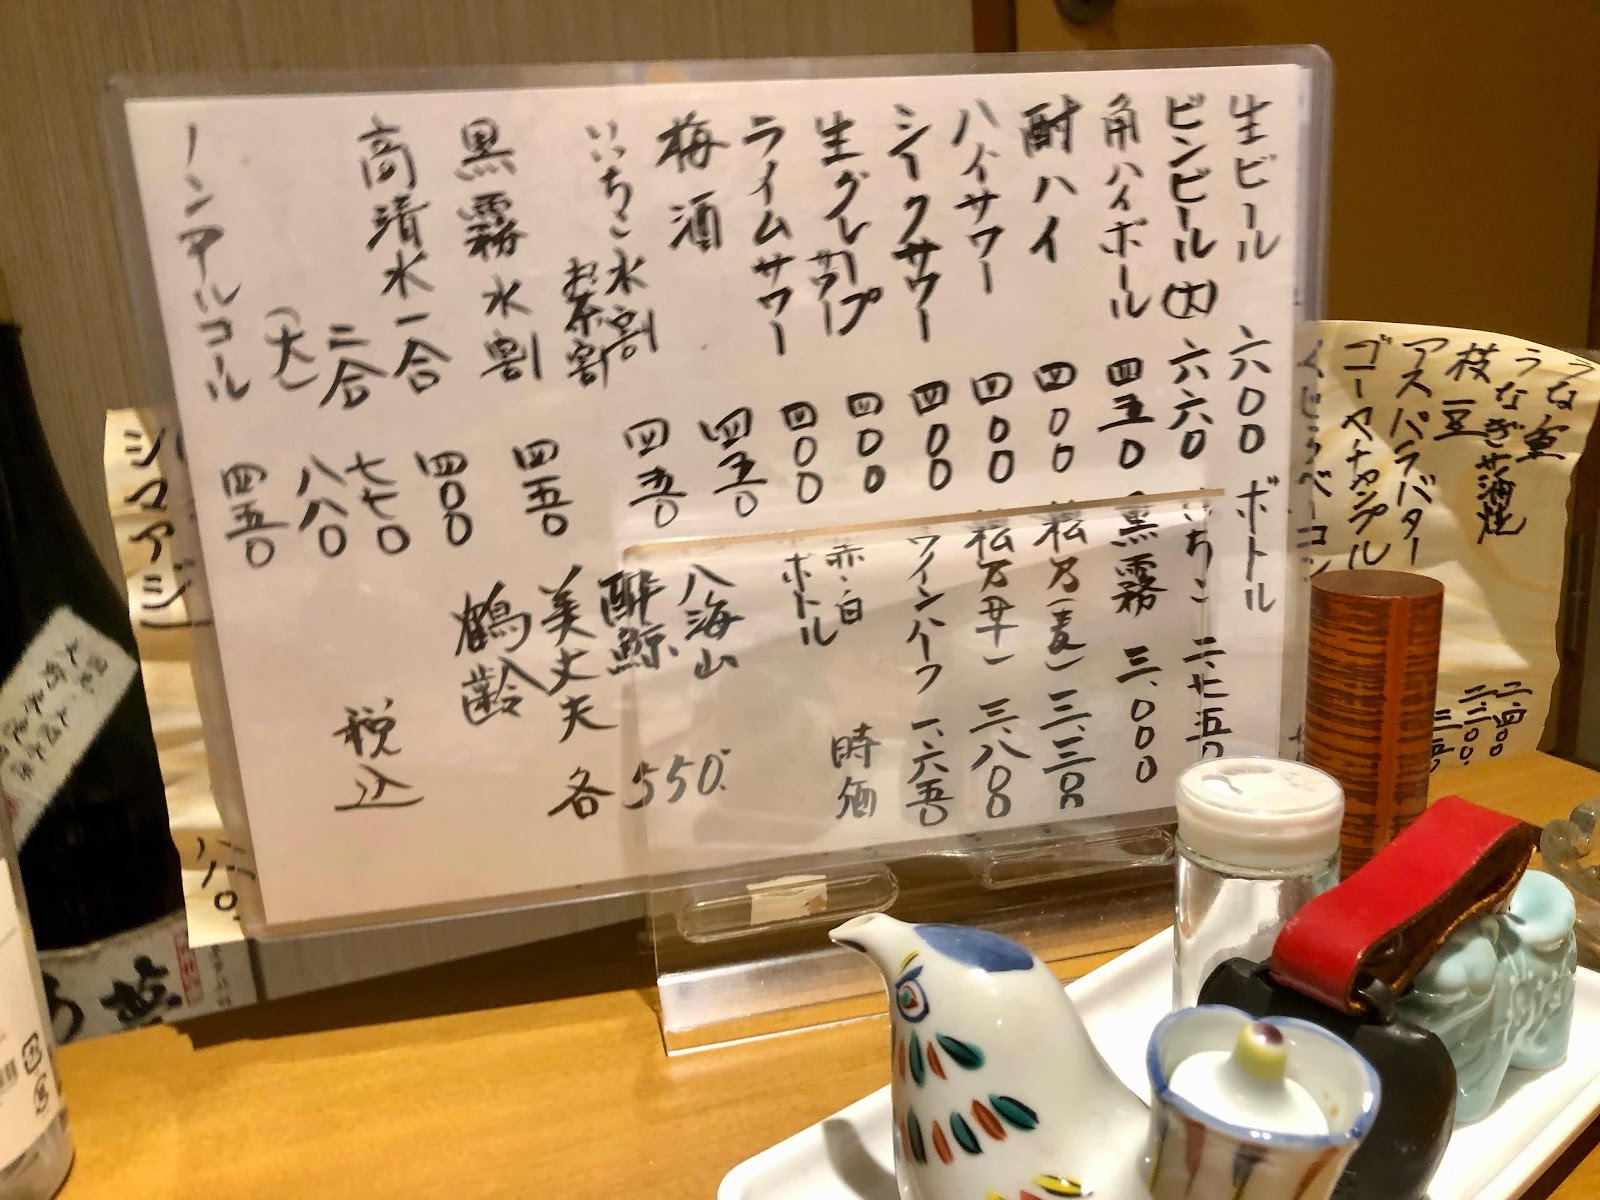 生ビール 六〇〇
ビンビール(大) 六六〇
角ハイボール 四五〇
酎ハイ 四〇〇
ハイサワー 四〇〇
シークワサワー 四〇〇
生グレープサワー 四〇〇
ライムサワー 四〇〇
梅酒 四五〇
いいちこ水割
お茶割 四五〇
黒霧水割 四五〇
高清水一合 四〇〇
二合 七七〇
(大) 八八〇
ノンアルコール 四五〇
ボトル
いいちこ 二、七五〇
黒霧 三、〇〇〇
松乃(麦) 三、三〇〇
松乃(芋) 三、八〇〇
ワインハーフ 一、六五〇
赤・白
ボトル 時価
八海山
酔鯨
美丈夫
鶴齢
各550
税込
うな重
うなぎ蒲焼
枝豆
アスパラバター
ゴーヤチャンプル
くじらベーコン
シマアジ